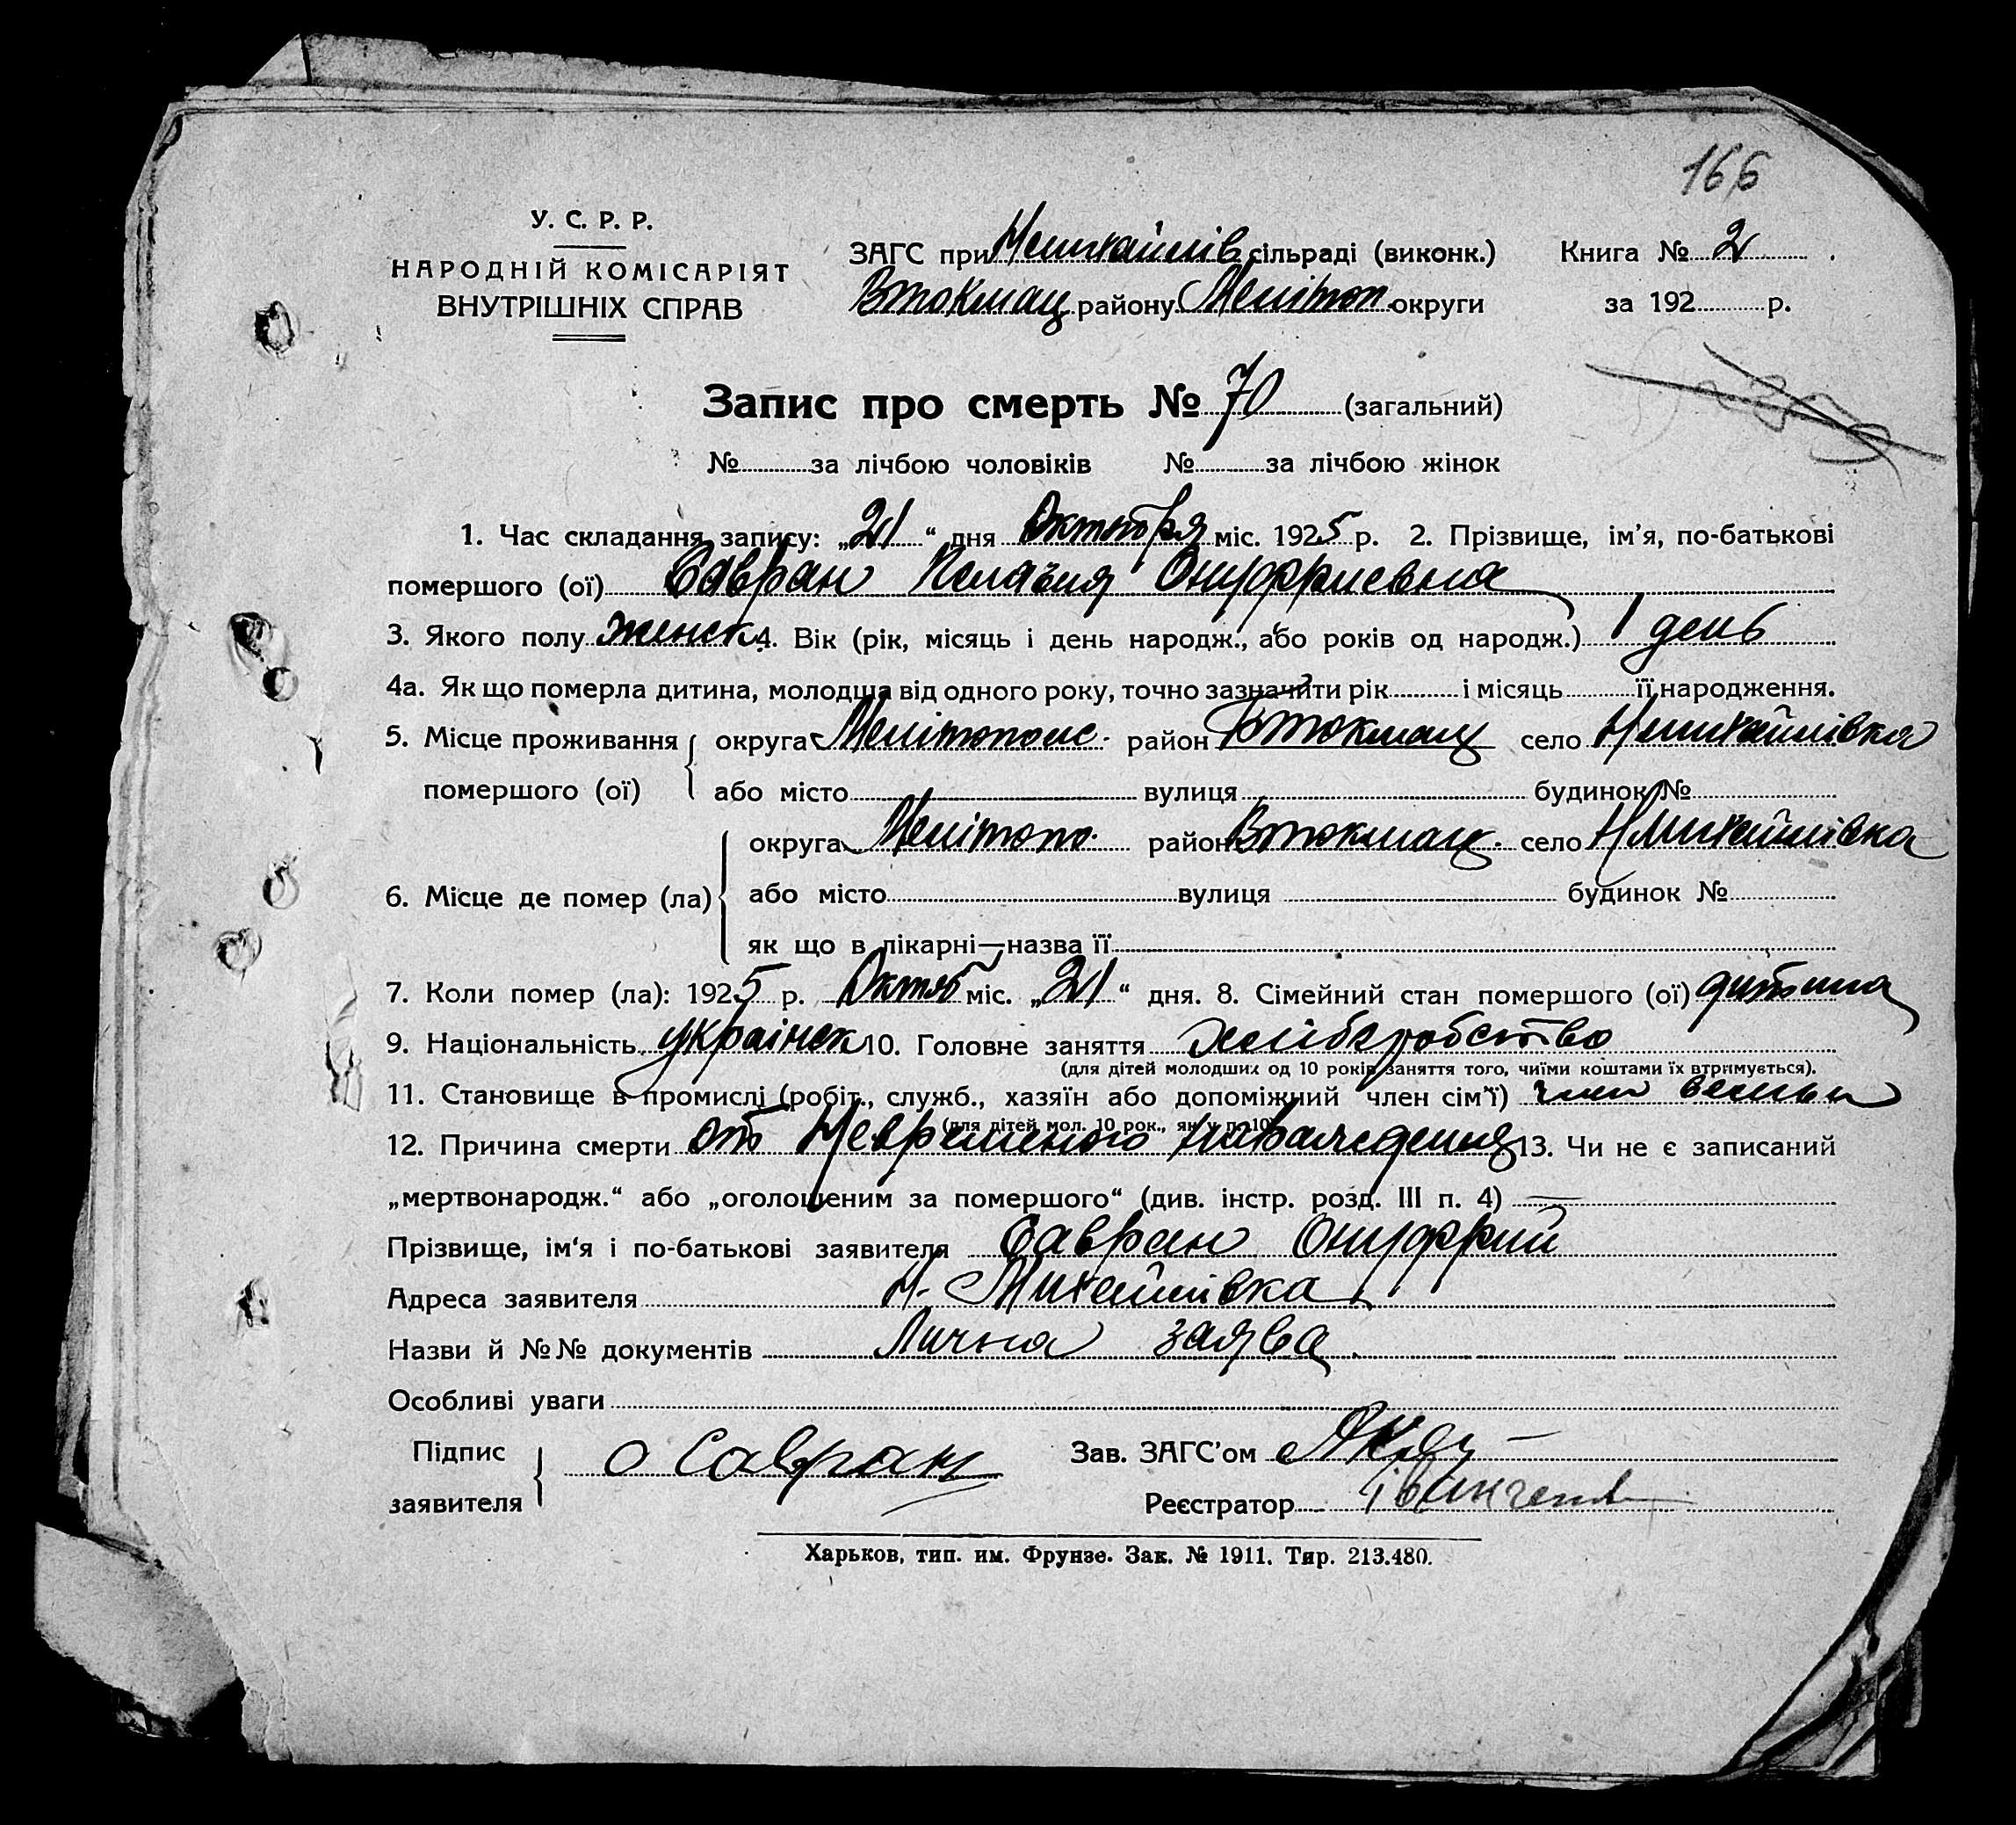 166
У. С. Р. Р.
НАРОДНІЙ КОМІСАРІЯТ
ВНУТРІШНІХ СПРАВ
ЗАГС при сільраді (виконк.)
Втокмац. району Мелітоп. округи
Книга № 2
за 192 р.
Запис про смерть № 70 (загальний)
№ за лічбою чоловіків № за лічбою жінок
1. Час складання запису: „21“ дня Октября міс. 1925 р. 2. Прізвище, ім'я, по-батькові
помершого (ої) Савран Пелагия Онуффриевна
3. Якого полу женск 4. Вік (рік, місяць і день народж., або років од народж.) 1 день
4а. Як що померла дитина, молодша від одного року, точно зазначити рік і місяць її народження.
5. Місце проживання округа Мелітопольс. район Втокмац село Нмихайлівка
помершого (ої) або місто вулиця будинок №
округа Мелітопо. район Втокмац. село НМихайлівка
6. Місце де помер (ла) або місто вулиця будинок №
як що в лікарні—назва її
7. Коли помер (ла): 1925 р. Октяб міс. „21“ дня. 8. Сімейний стан помершого (ої) дитина
9. Національність українск 10. Головне заняття хліборобство
(для дітей молодших од 10 років заняття того, чиїми коштами їх втримується).
11. Становище в промислі (робіт., служб., хазяїн або допоміжний член сім'ї) член семьи
(для дітей мол. 10 рок., як у п. 10)
12. Причина смерти от 13. Чи не є записаний
„мертвонародж.“ або „оголошеним за помершого“ (див. інстр. розд. III п. 4) —
Прізвище, ім'я і по-батькові заявителя Савран Онуффрий
Адреса заявителя Н. Михайлівка
Назви й №№ документів Лична заява.
Особливі уваги
Підпис
заявителя О Савран
Зав. ЗАГС'ом
Реєстратор
Харьков, тип. им. Фрунзе. Зак. № 1911. Тир. 213.480.